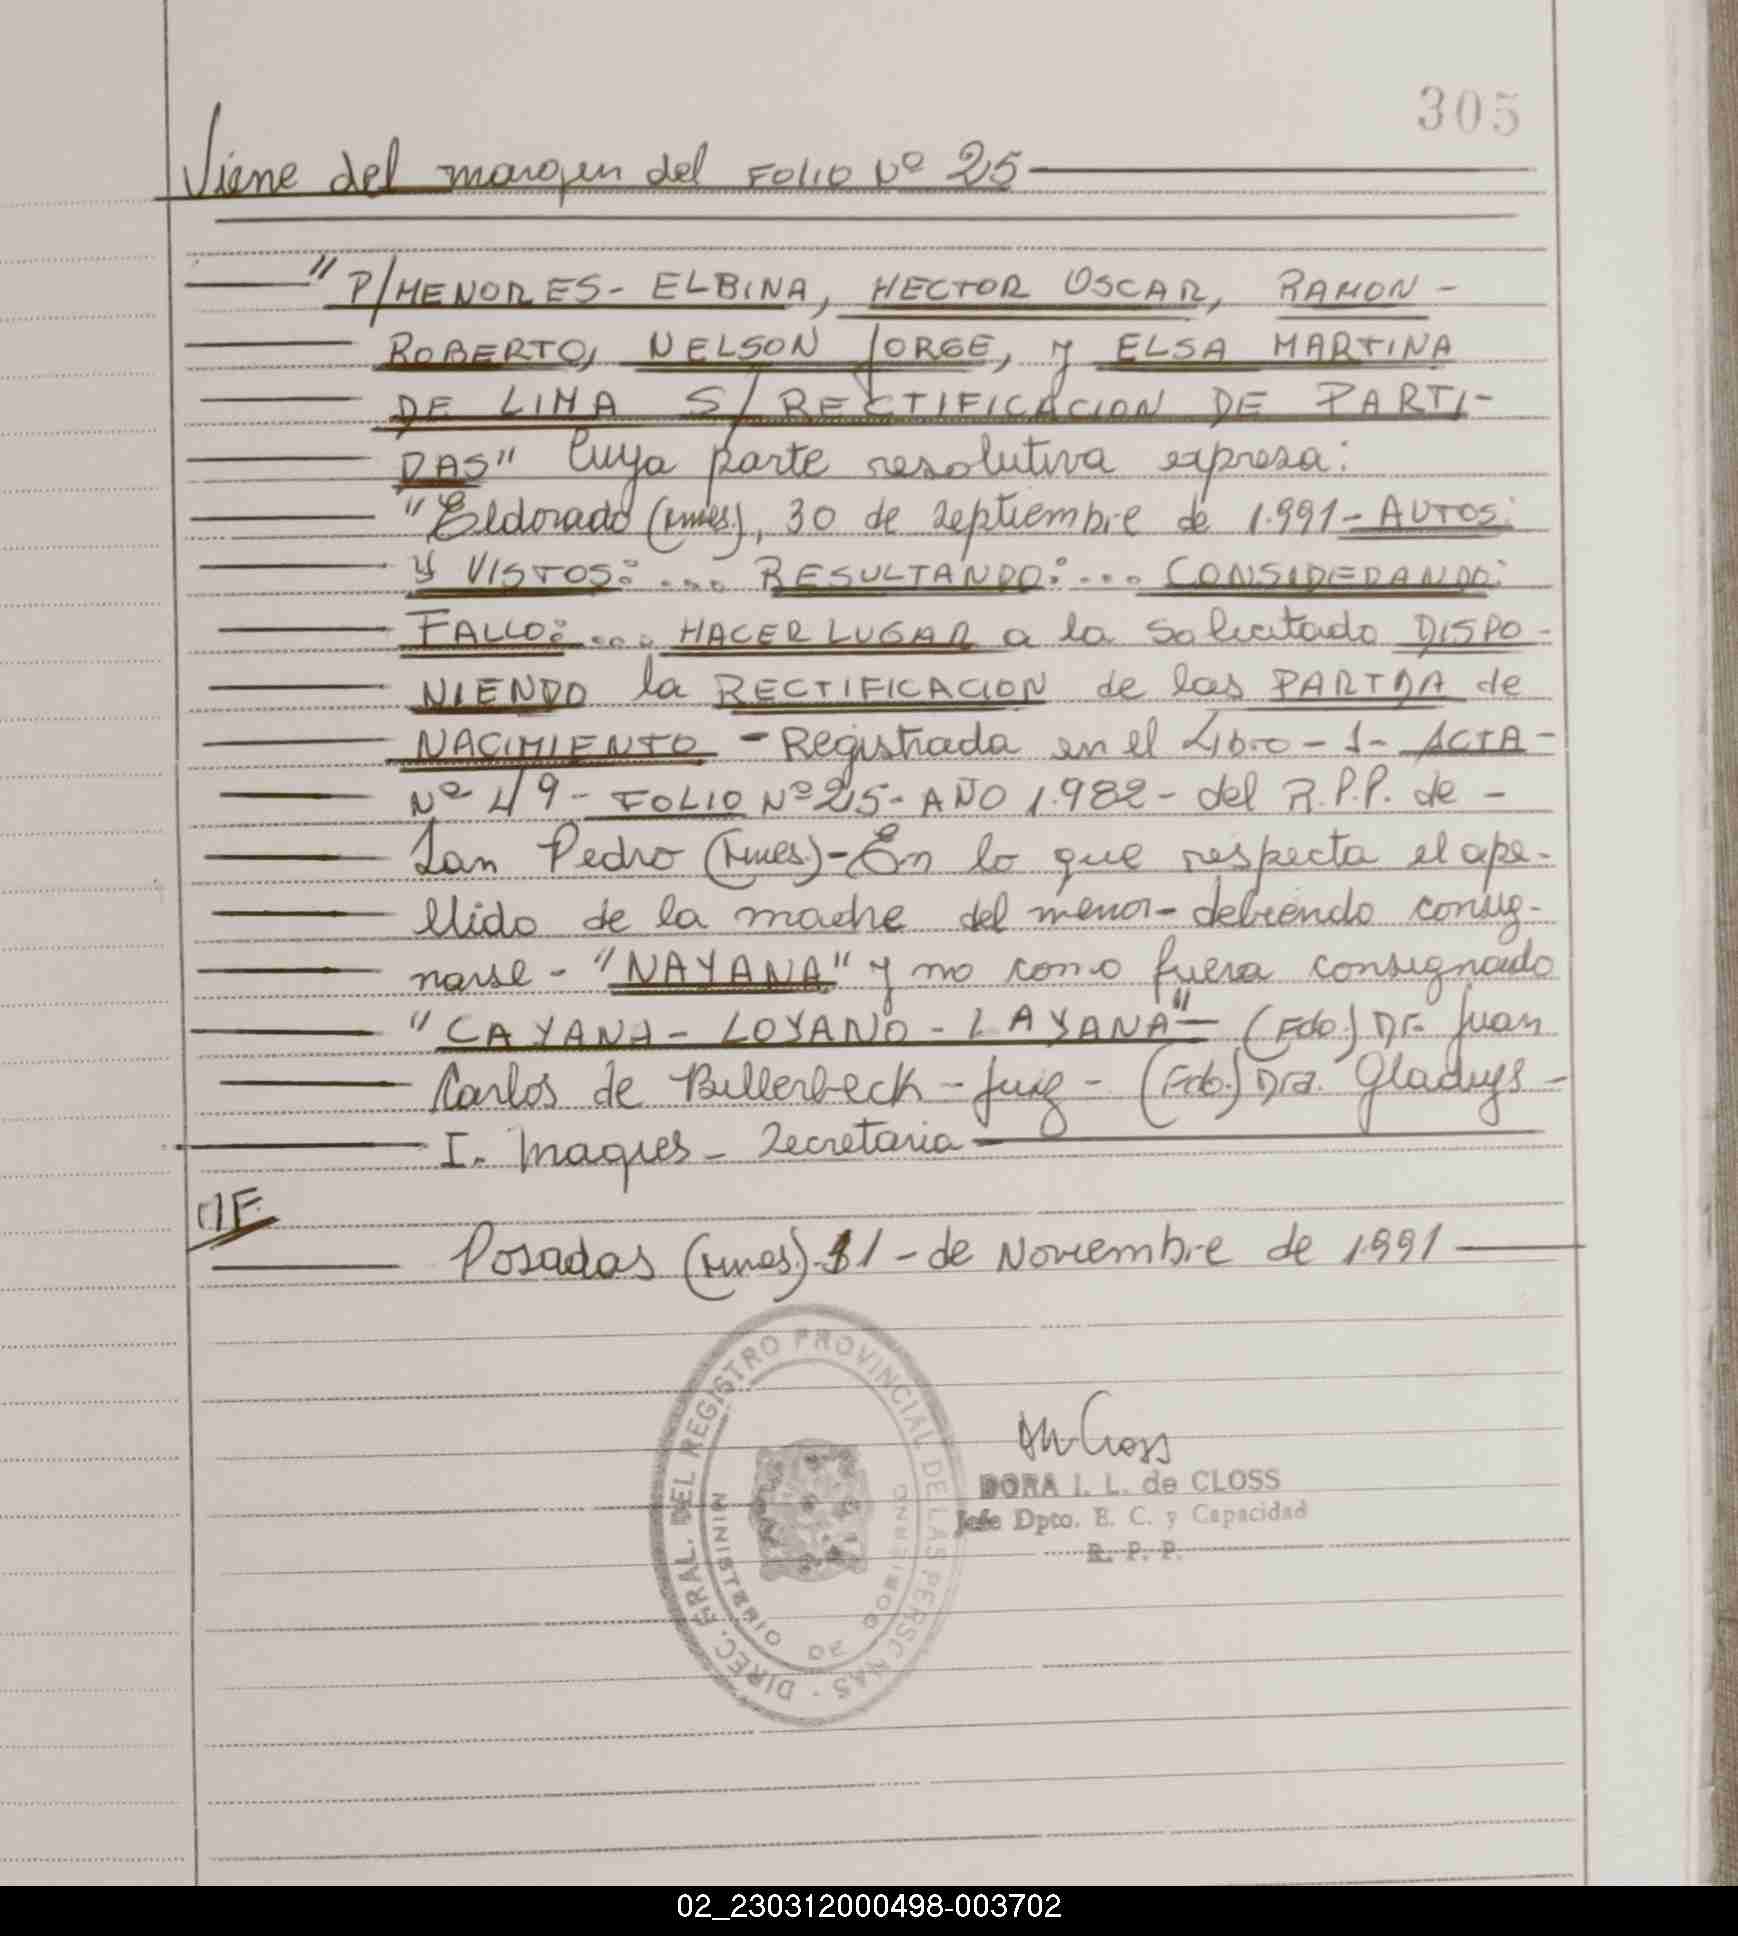 305
Viene del margen del FOLIO Nº 25
"P/MENORES- ELBINA, HECTOR OSCAR, RAMON -
ROBERTO, NELSON JORGE, y ELSA MARTINA
DE LIMA S/ RECTIFICACION DE PARTI-
DAS" Cuya parte resolutiva expresa:
"Eldorado (Mnes.), 30 de septiembre de 1.991- AUTOS:
y VISTOS:... RESULTANDO:... CONSIDERANDO:
FALLO:.... HACER LUGAR a la solicitado DISPO-
NIENDO la RECTIFICACION de las PARTIDA de
NACIMIENTO - Registrada en el Libro - 1- ACTA -
Nº 49- FOLIO Nº 25- AÑO 1.982- del R.P.P. de -
San Pedro (Mnes.)- En lo que respecta el ape-
llido de la madre del menor- debiendo consig-
narse - "NAYANA" y no como fuera consignado
"CAYANA- LOYANO - LAYANA"- (Fdo.) Dr. Juan
Carlos de Billerbeck - Juez - (Fdo.) Dra. Gladys -
I. Maques - Secretaria
Posadas (Mnes.) 11 - de Noviembre de 1.991
DIREC. GRAL. DEL REGISTRO PROVINCIAL DE LAS PERSONAS -
MINISTERIO DE GOBIERNO
DORA I. L. de CLOSS
Jefe Dpto. E. C. y Capacidad
R. P. P.
02_230312000498-003702